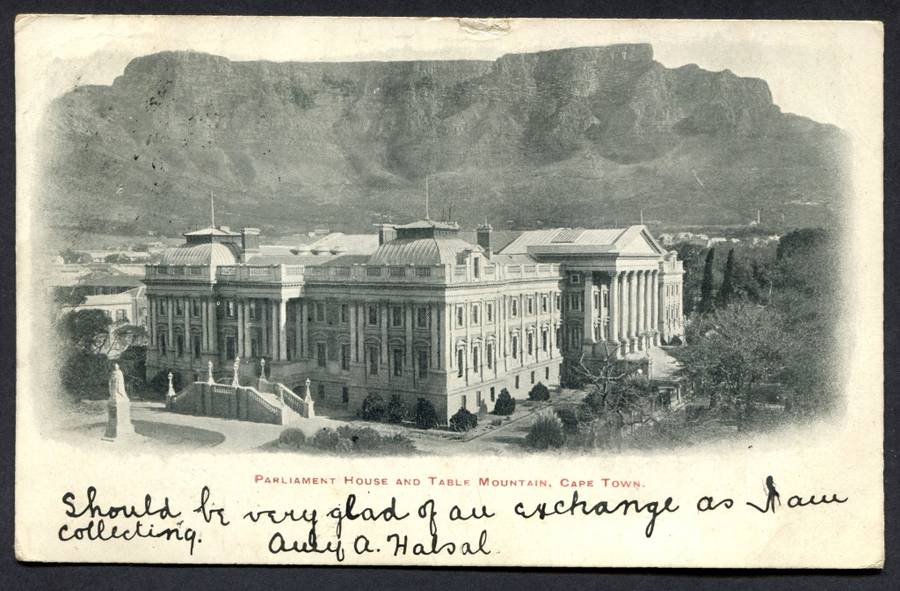 PARLIAMENT HOUSE AND TABLE MOUNTAIN, CAPE TOWN.
Should be very glad of an exchange as I am
collecting. A. Halsal